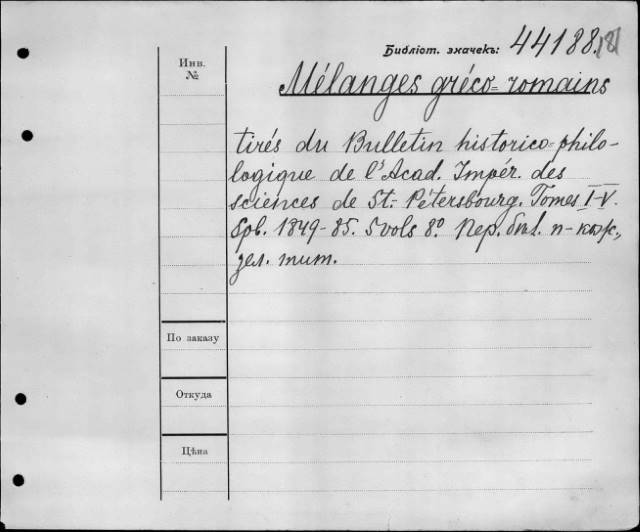 Библіот. значекъ: 44188(8)
Инв. №
Mélanges gréco-romains
tirés du Bulletin historico-philo-
logique de l'Acad. Impér. des
sciences de St.-Pétersbourg. Tomes I-V.
Spb. 1849-85. 5 vols 8º Пер. бѣл. п-кож,
зел. тит.
По заказу
Откуда
Цѣна